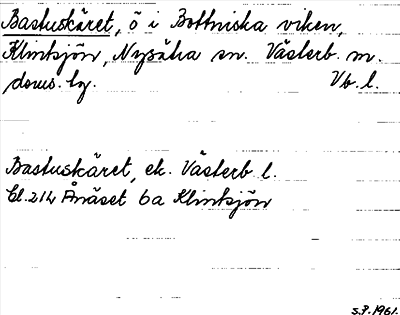 Bastuskäret, ö i Bottniska viken,
Klintsjön, Nysätra sn. Västerb. m.
doms. by. Vb. l.
Bastuskäret, ek. Västerb l.
bl. 214 Ånäset 6a Klintsjön
S.P. 1961.